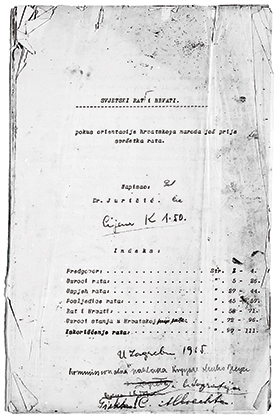 SVJETSKI RAT I HRVATI.
pokus orientacije hrvatskoga naroda još prije
svršetka rata.
Napisao:
Dr. Juričić.
Cijena K 1.50.
Indeks:
Predgovor: Str. 2 - 4.
Uzroci rata: " 5 - 26.
Uspjeh rata: " 27 - 44.
Posljedice rata: " 45 - 57.
Rat i Hrvati: " 58 - 71.
Uzroci stanja u Hrvatskoj " 72 - 98.
Iskorišćenje rata: " 99 - 111.
U Zagrebu 1915
Komisionalna naklada Knjižare
C. Albrechta